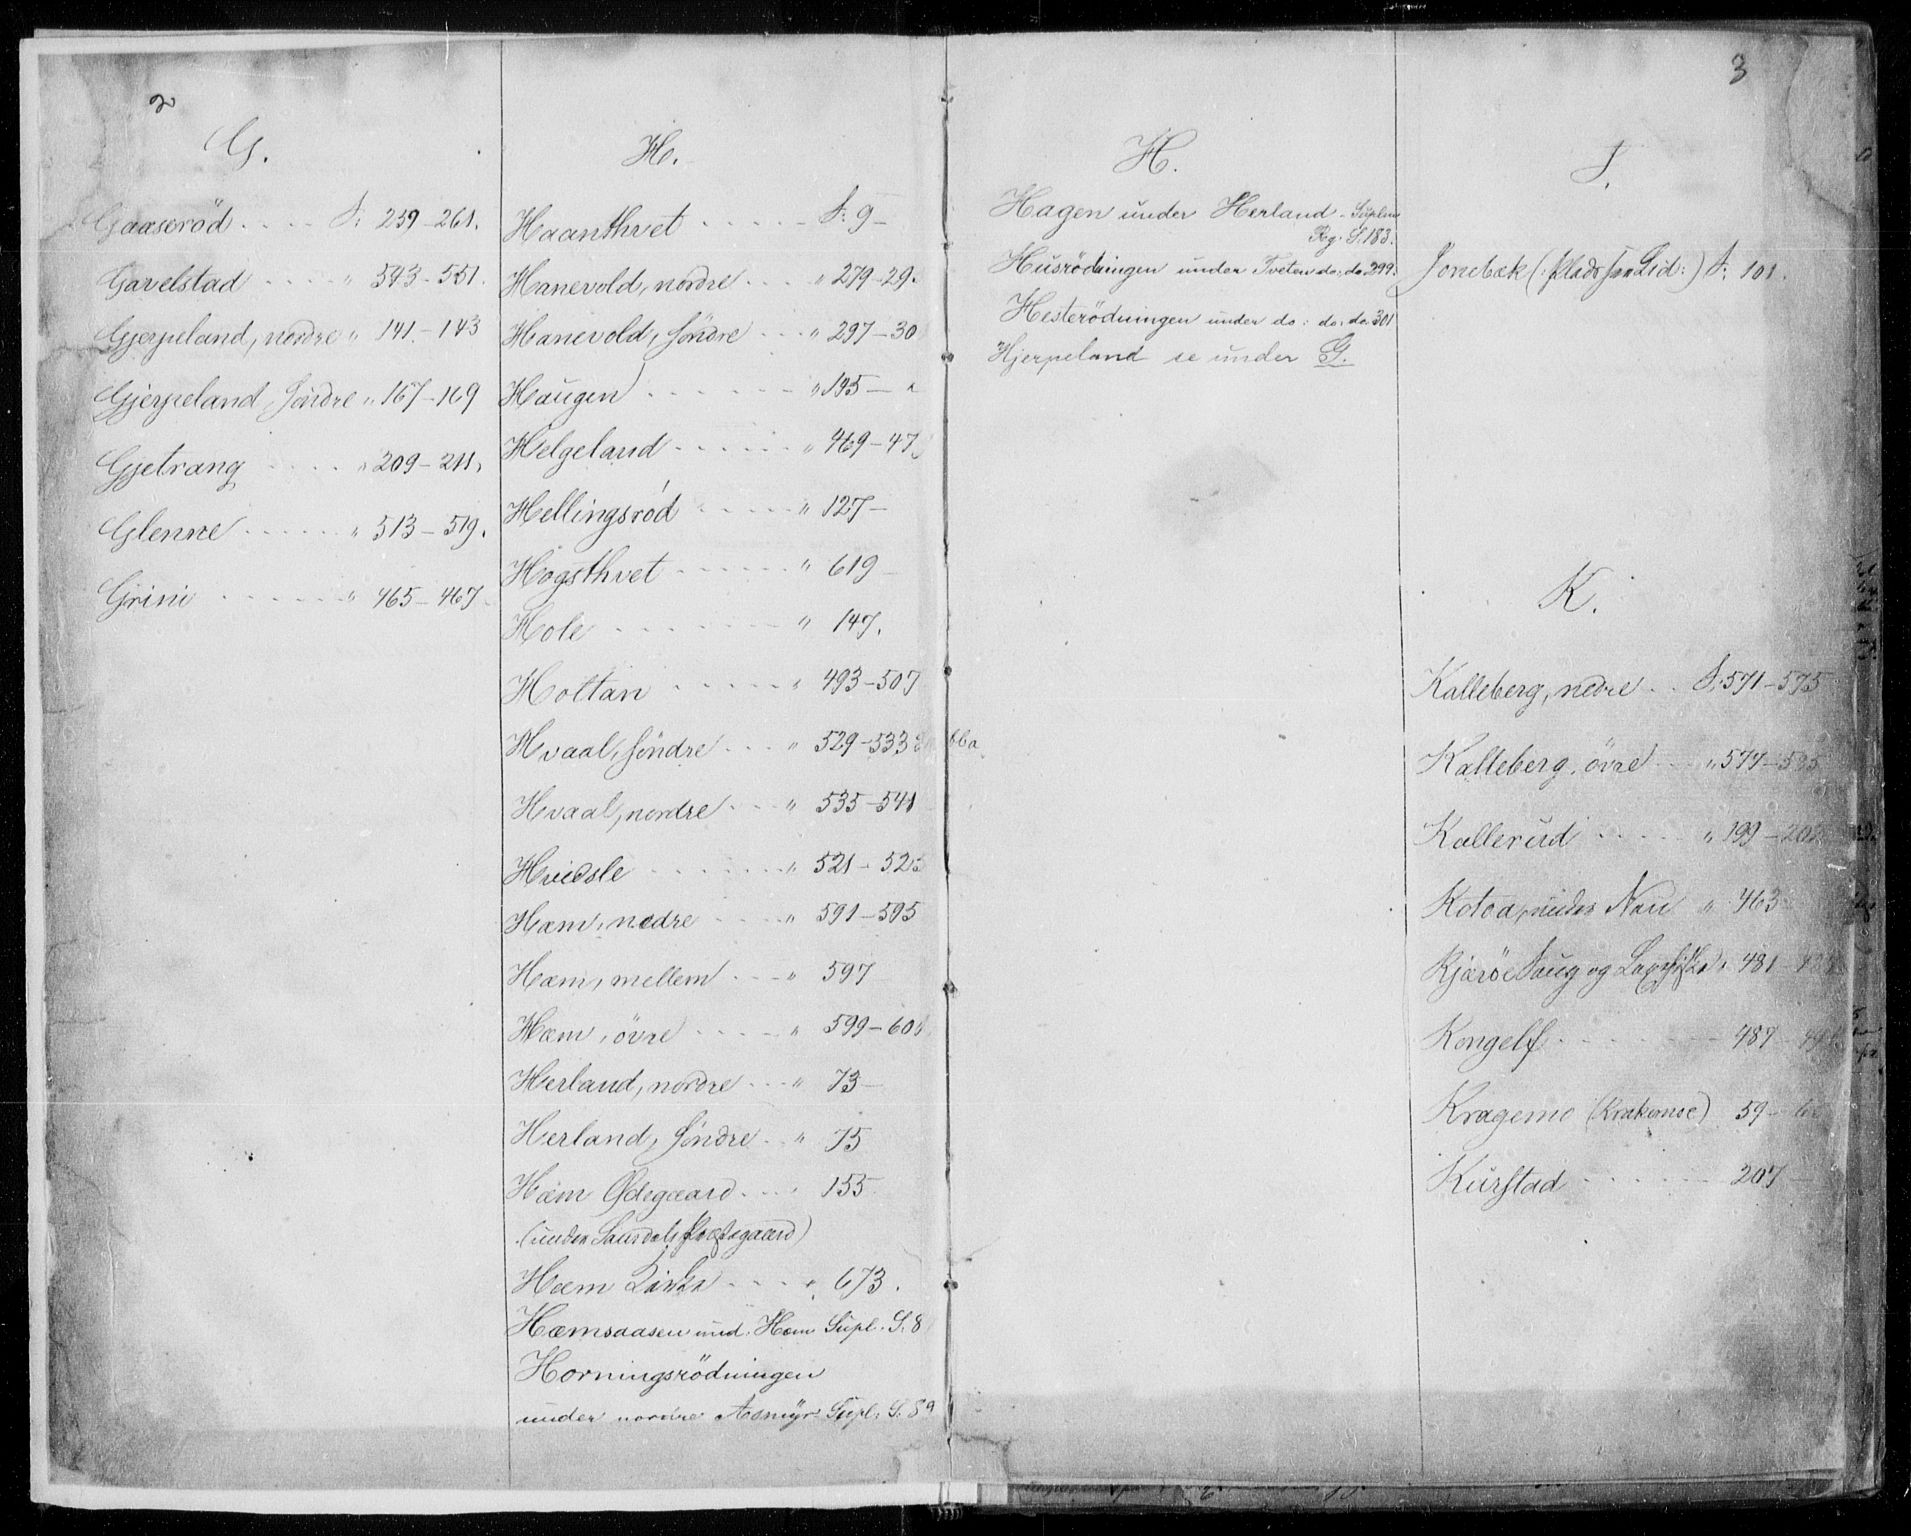 2
G.
Gaaserød S: 259-261.
Gavelstad " 543-551.
Gjerpeland, nordre " 141-143
Gjerpeland, söndre " 167-169
Gjetrang " 209-211.
Glenne " 513-519.
Grini " 465-467
H.
Haanthvet S: 9-
Hanevold, nordre " 279-29
Hanevold, söndre " 297-30
Haugen " 195-
Helgeland " 469-47
Hellingsrød " 127-
Hogsthvet " 619-
Hole " 147.
Holtan " 493-507
Hvaal, söndre " 529-533
Hvaal, nordre " 535-541
Hvidsle " 521-525
Hæm, nedre " 591-595
Hæm, mellem " 597
Hæm, övre " 599-601
Herland, nordre " 73-
Herland, söndre " 75
Hæm Ødegaard 155.
(under Saurdals Prætegaard)
Hæm Kirke " 673.
Hæmsaasen und. Hæm Supl. S. 8
Horningsrödningen
under nordre Asmyr Supl. S. 89
3
H.
Hagen under Herland Suplm
Rg. S. 183.
Husrödningen under Tveten do: do 299.
Hesterödningen under do: do: do 301
Hjerpeland se under G.
J.
Jonebæk (Plads fra Lid:) S: 101.
K.
Kalleberg, nedre S: 571-575
Kalleberg, övre " 577-585
Kallerud " 199-202
Kotoa, under Nau " 463
Kjærøe Saug og Laxefiske 481-
Kongelf 487-
Kragemo (Krakemoe) 59-6
Kurstad 207-